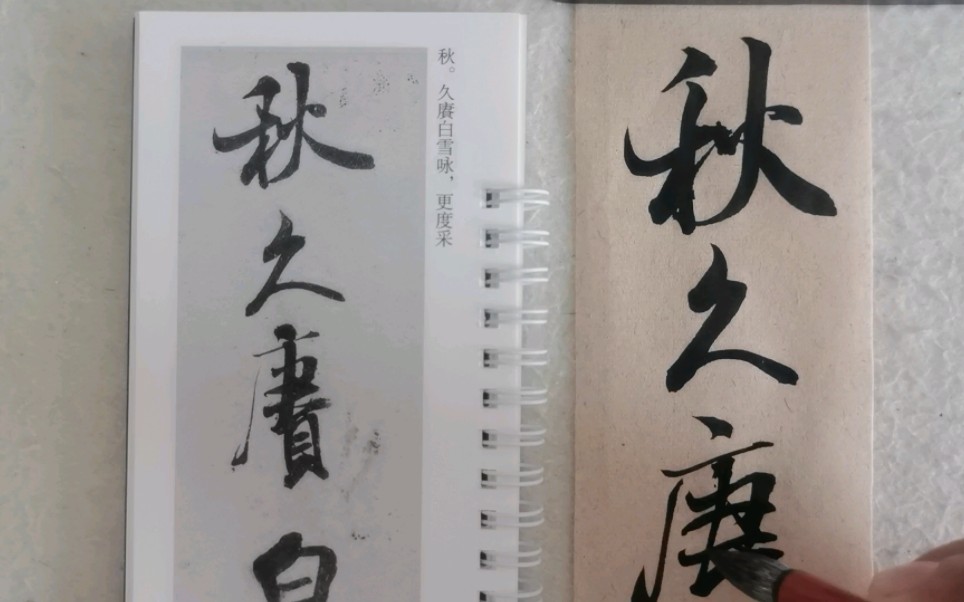 秋。久赓白雪咏，更度采
秋久赓白
秋久